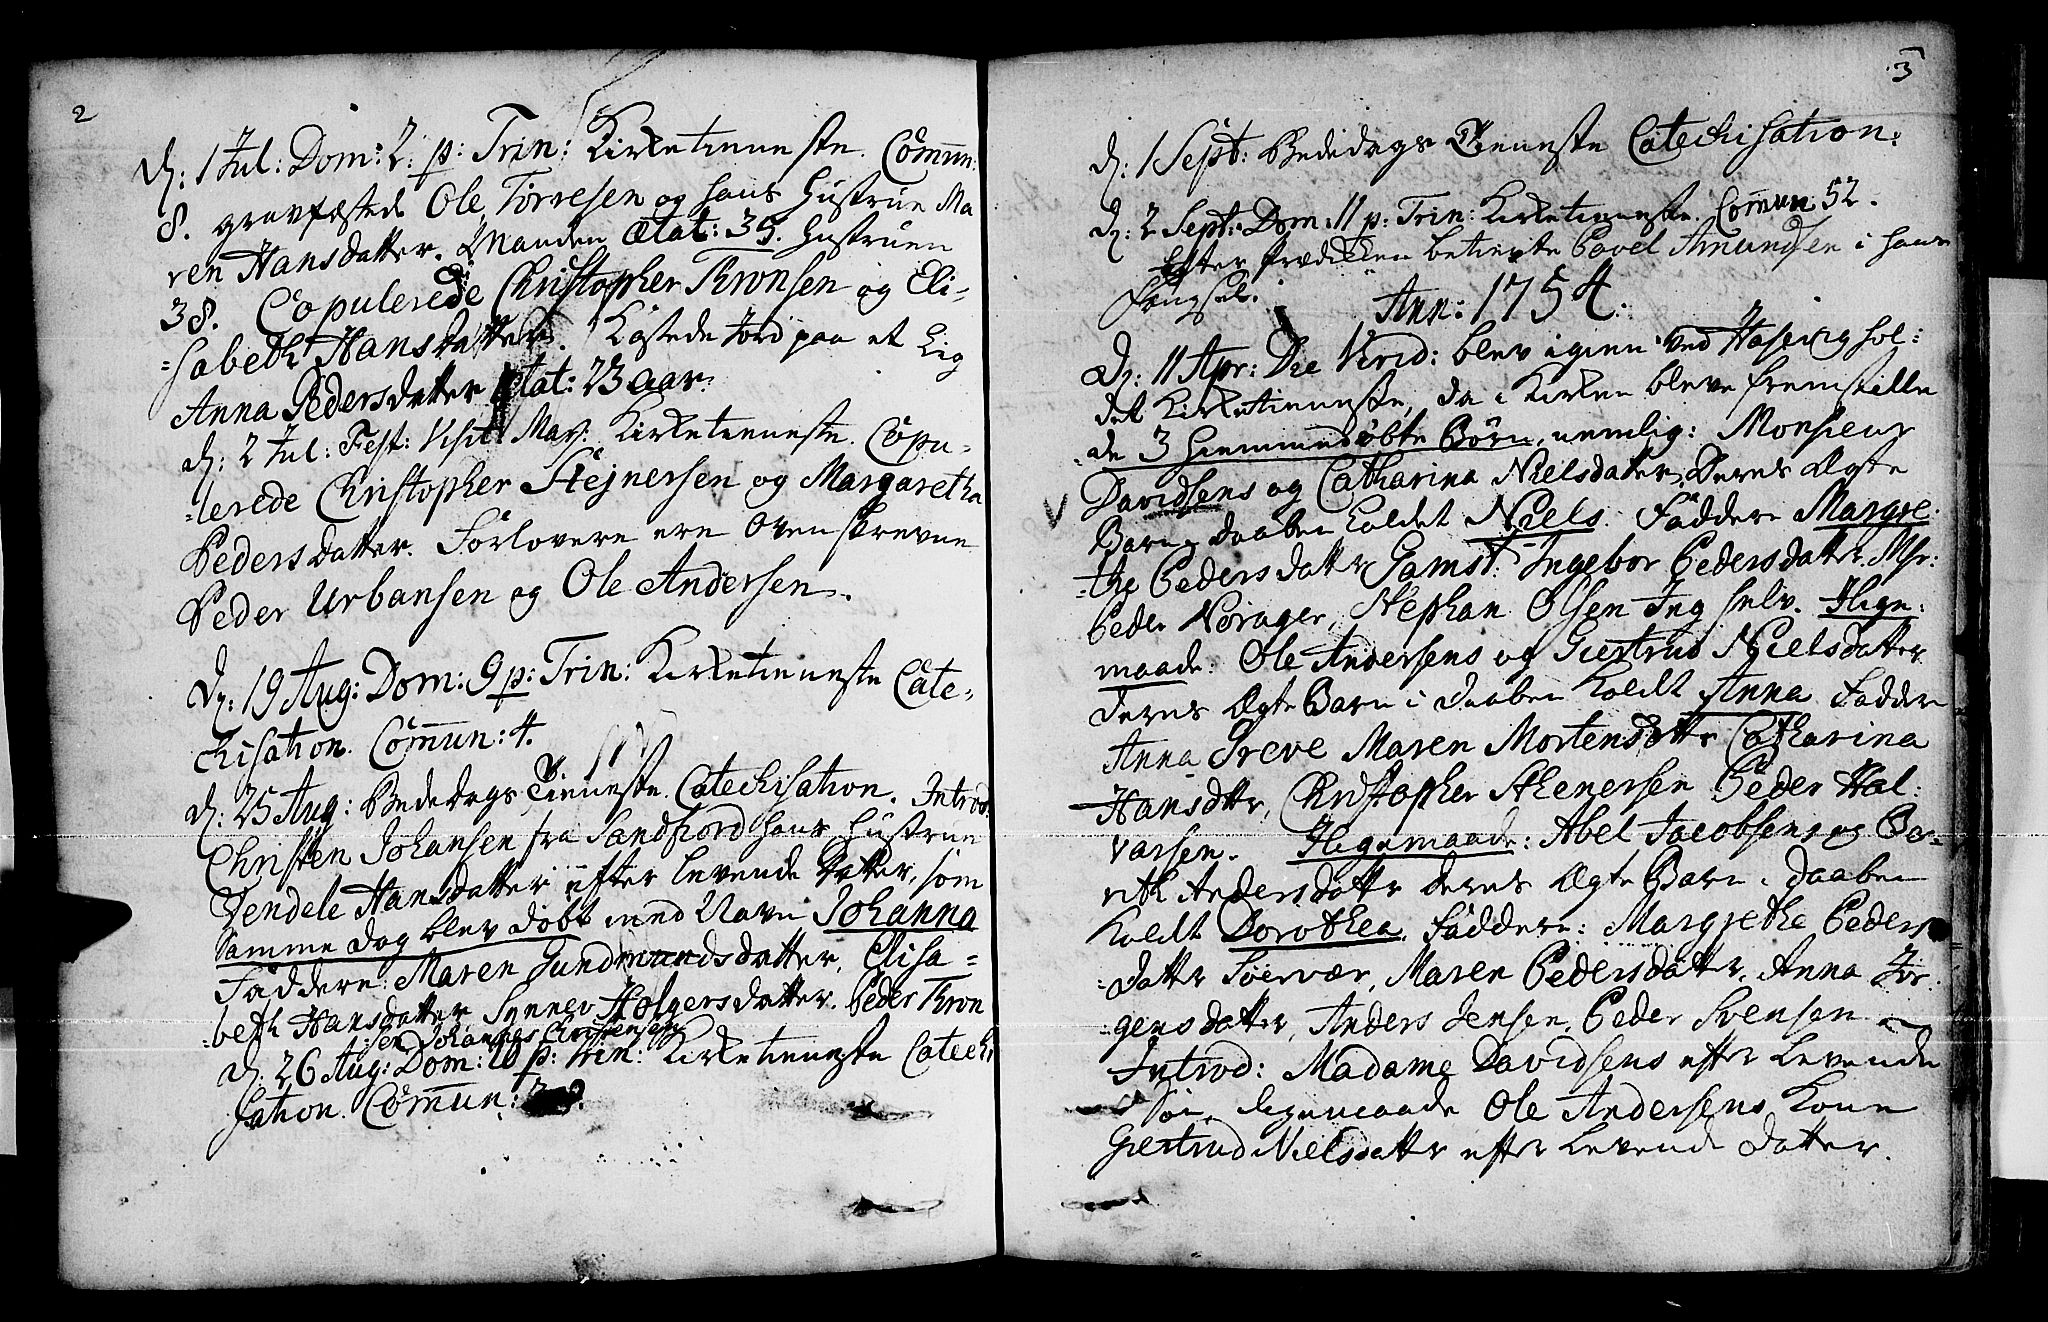 2
D: 1 Jul: Dom: 2: p: Trin: Kirketienneste. Commun:
8. gravfæstede Ole Torresen og hans Hustrue Ma
ren Hansdatter. Manden Ætat: 35. Hustruen
38. Copulerede Christopher Thronsen og Eli-
-sabeth Hansdatter. Kastede Jord paa et Lig
Anna Pedersdatter Ætat: 23 aar.
D: 2 Jul: Fest: Visit: Mar: Kirketienneste. Copu-
-lerede Christopher Stejnersen og Margaretha
Pedersdatter. Forlovere ere Ovenskrevne
Peder Urbansen og Ole Andersen.
D: 19 Aug: Dom: 9 p: Trin: Kirketienneste Cate-
chisation. Commun: 4.
D: 25 Aug: Bededags Tienneste. Catechisation. Introd:
Christen Johansen fra Sandfiord hans Hustrue
Vendele Hansdatter efter levende Datter, som
Samme dag blev døbt med Navn Johanna
Faddere: Maren Gundmundsdatter, Elisa-
-beth Hansdatter Synnev Holgersdatter. Peder Thron
-sen Johannes Christensen
D: 26 Aug: Dom: 10 p: Trin: Kirketienneste Catechi
sation. Commun:
3
D: 1 Sept: Bededags Tienneste Catechisation:
D: 2 Sept: Dom: 11 p: Trin: Kirketienneste. Commun: 52.
Efter Prædiken betiente Povel Amundsen i hans
Fængsel.
Ann: 1754.
D: 11 Apr: Die Virid: blev igien ved Hasvig hol-
det Kirketienneste, da i Kirken bleve fremstille
-de 3 Hiemmedøbte Børn, nemlig: Monsieur
Davidsens og Catharina Nielsdatter, Deres Ægte
Barn i daaben kaldet Niels. Faddere Margre
-the Pedersdattr Gamst: Ingebor Pedersdatter. Msr:
Peder Norager, Stephan Olsen Jeg selv. Lige-
maade: Ole Andersens og Giertrud Nielsdatter
deres Ægte Barn i daaben kaldt Anna Fadder
Anna Greve Maren Mortensdttr Catharina
Hansdttr, Christopher Stenersen Peder Hal-
varsen. Ligemaade: Abel Jacobsens og Be-
rith Andersdattr deres Ægte Barn i daaben
kaldt Dorothea. Faddere: Margrethe Peders
-dattr Soervær, Maren Pedersdatter, Anna Jør
-gensdatter, Anders Jensen, Peder Svensen
Introd: Madame Davidsens efter levende
Søn, ligemaade Ole Andersens Kone
Giertrud Nielsdattr efter levende datter.